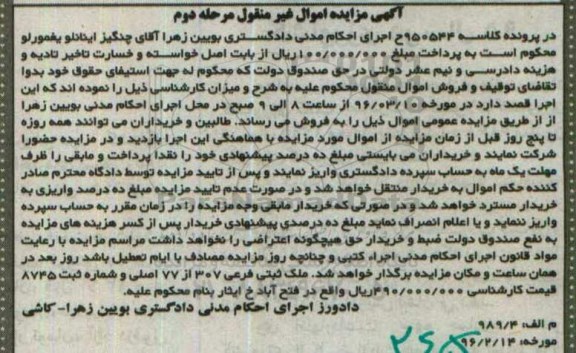 آگهی مزایده اموال غیر منقول مرحله دوم
در پرونده کلاسه ۹۵۰۵۴۴ح اجرای احکام مدنی دادگستری بویین زهرا آقای چنگیز اینانلو یغمورلو
محکوم است به پرداخت مبلغ ۱۰۰/۰۰۰/۰۰۰ریال از بابت اصل خواسته و خسارت تاخیر تادیه و
هزینه دادرسی و نیم عشر دولتی در حق صندوق دولت که محکوم له جهت استیفای حقوق خود بدوا
تقاضای توقیف و فروش اموال منقول محکوم علیه به شرح و میزان کارشناسی ذیل را نموده اند که این
اجرا قصد دارد در مورخه ۹۶/۰۳/۱۰ از ساعت ۸ الی ۹ صبح در محل اجرای احکام مدنی بویین زهرا
از از طریق مزایده عمومی اموال ذیل را به فروش می رساند. طالبین و خریداران می توانند همه روزه
تا پنج روز قبل از زمان مزایده از اموال مورد مزایده با هماهنگی این اجرا بازدید و در مزایده حضورا
شرکت نمایند و خریداران می بایستی مبلغ ده درصد پیشنهادی خود را نقدا پرداخت و مابقی را ظرف
مهلت یک ماه به حساب سپرده دادگستری واریز نمایند و پس از تایید مزایده توسط دادگاه محترم صادر
کننده حکم اموال به خریدار منتقل خواهد شد و در صورت عدم تایید مزایده مبلغ ده درصد واریزی به
خریدار مسترد خواهد شد و در صورتی که خریدار مابقی وجه مزایده را در زمان مقرر به حساب سپرده
واریز ننماید و یا اعلام انصراف نماید مبلغ ده درصدی پیشنهادی خریدار پس از کسر هزینه های مزایده
به نفع صندوق دولت ضبط و خریدار حق هیچگونه اعتراضی را نخواهد داشت مراسم مزایده با رعایت
مواد قانون اجرای احکام مدنی اجراء کتبی و چنانچه روز مزایده مصادف با ایام تعطیل باشد روز بعد در
همان ساعت و مکان مزایده برگذار خواهد شد. ملک ثبتی فرعی ۳۰۷ از ۷۷ اصلی و شماره ثبت ۸۷۴۵
قیمت کارشناسی ۴۹۰/۰۰۰/۰۰۰ریال واقع در فتح آباد خ ایثار بنام محکوم علیه.
دادورز اجرای احکام مدنی دادگستری بویین زهرا- کاشی
م الف: ۹۸۹/۴
مورخه: ۹۶/۲/۱۴